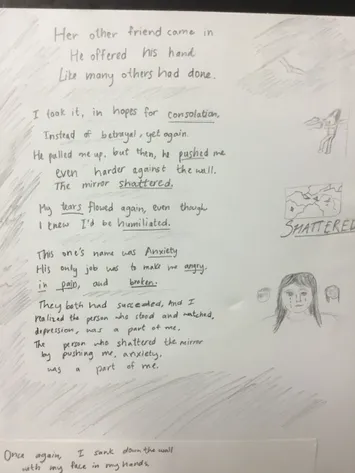 Her other friend came in
He offered his hand
Like many others had done.
I took it, in hopes for consolation.
Instead of betrayal, yet again.
He pulled me up, but then, he pushed me
even harder against the wall.
The mirror shattered.
My tears flowed again, even though
I knew I'd be humiliated.
This one's name was Anxiety
His only job was to make me angry,
in pain, and broken.
They both had succeeded, And I
realized the person who stood and watched,
depression, was a part of me.
The person who shattered the mirror
by pushing me, anxiety,
was a part of me.
SHATTERED
Once again, I sank down the wall
with my face in my hands